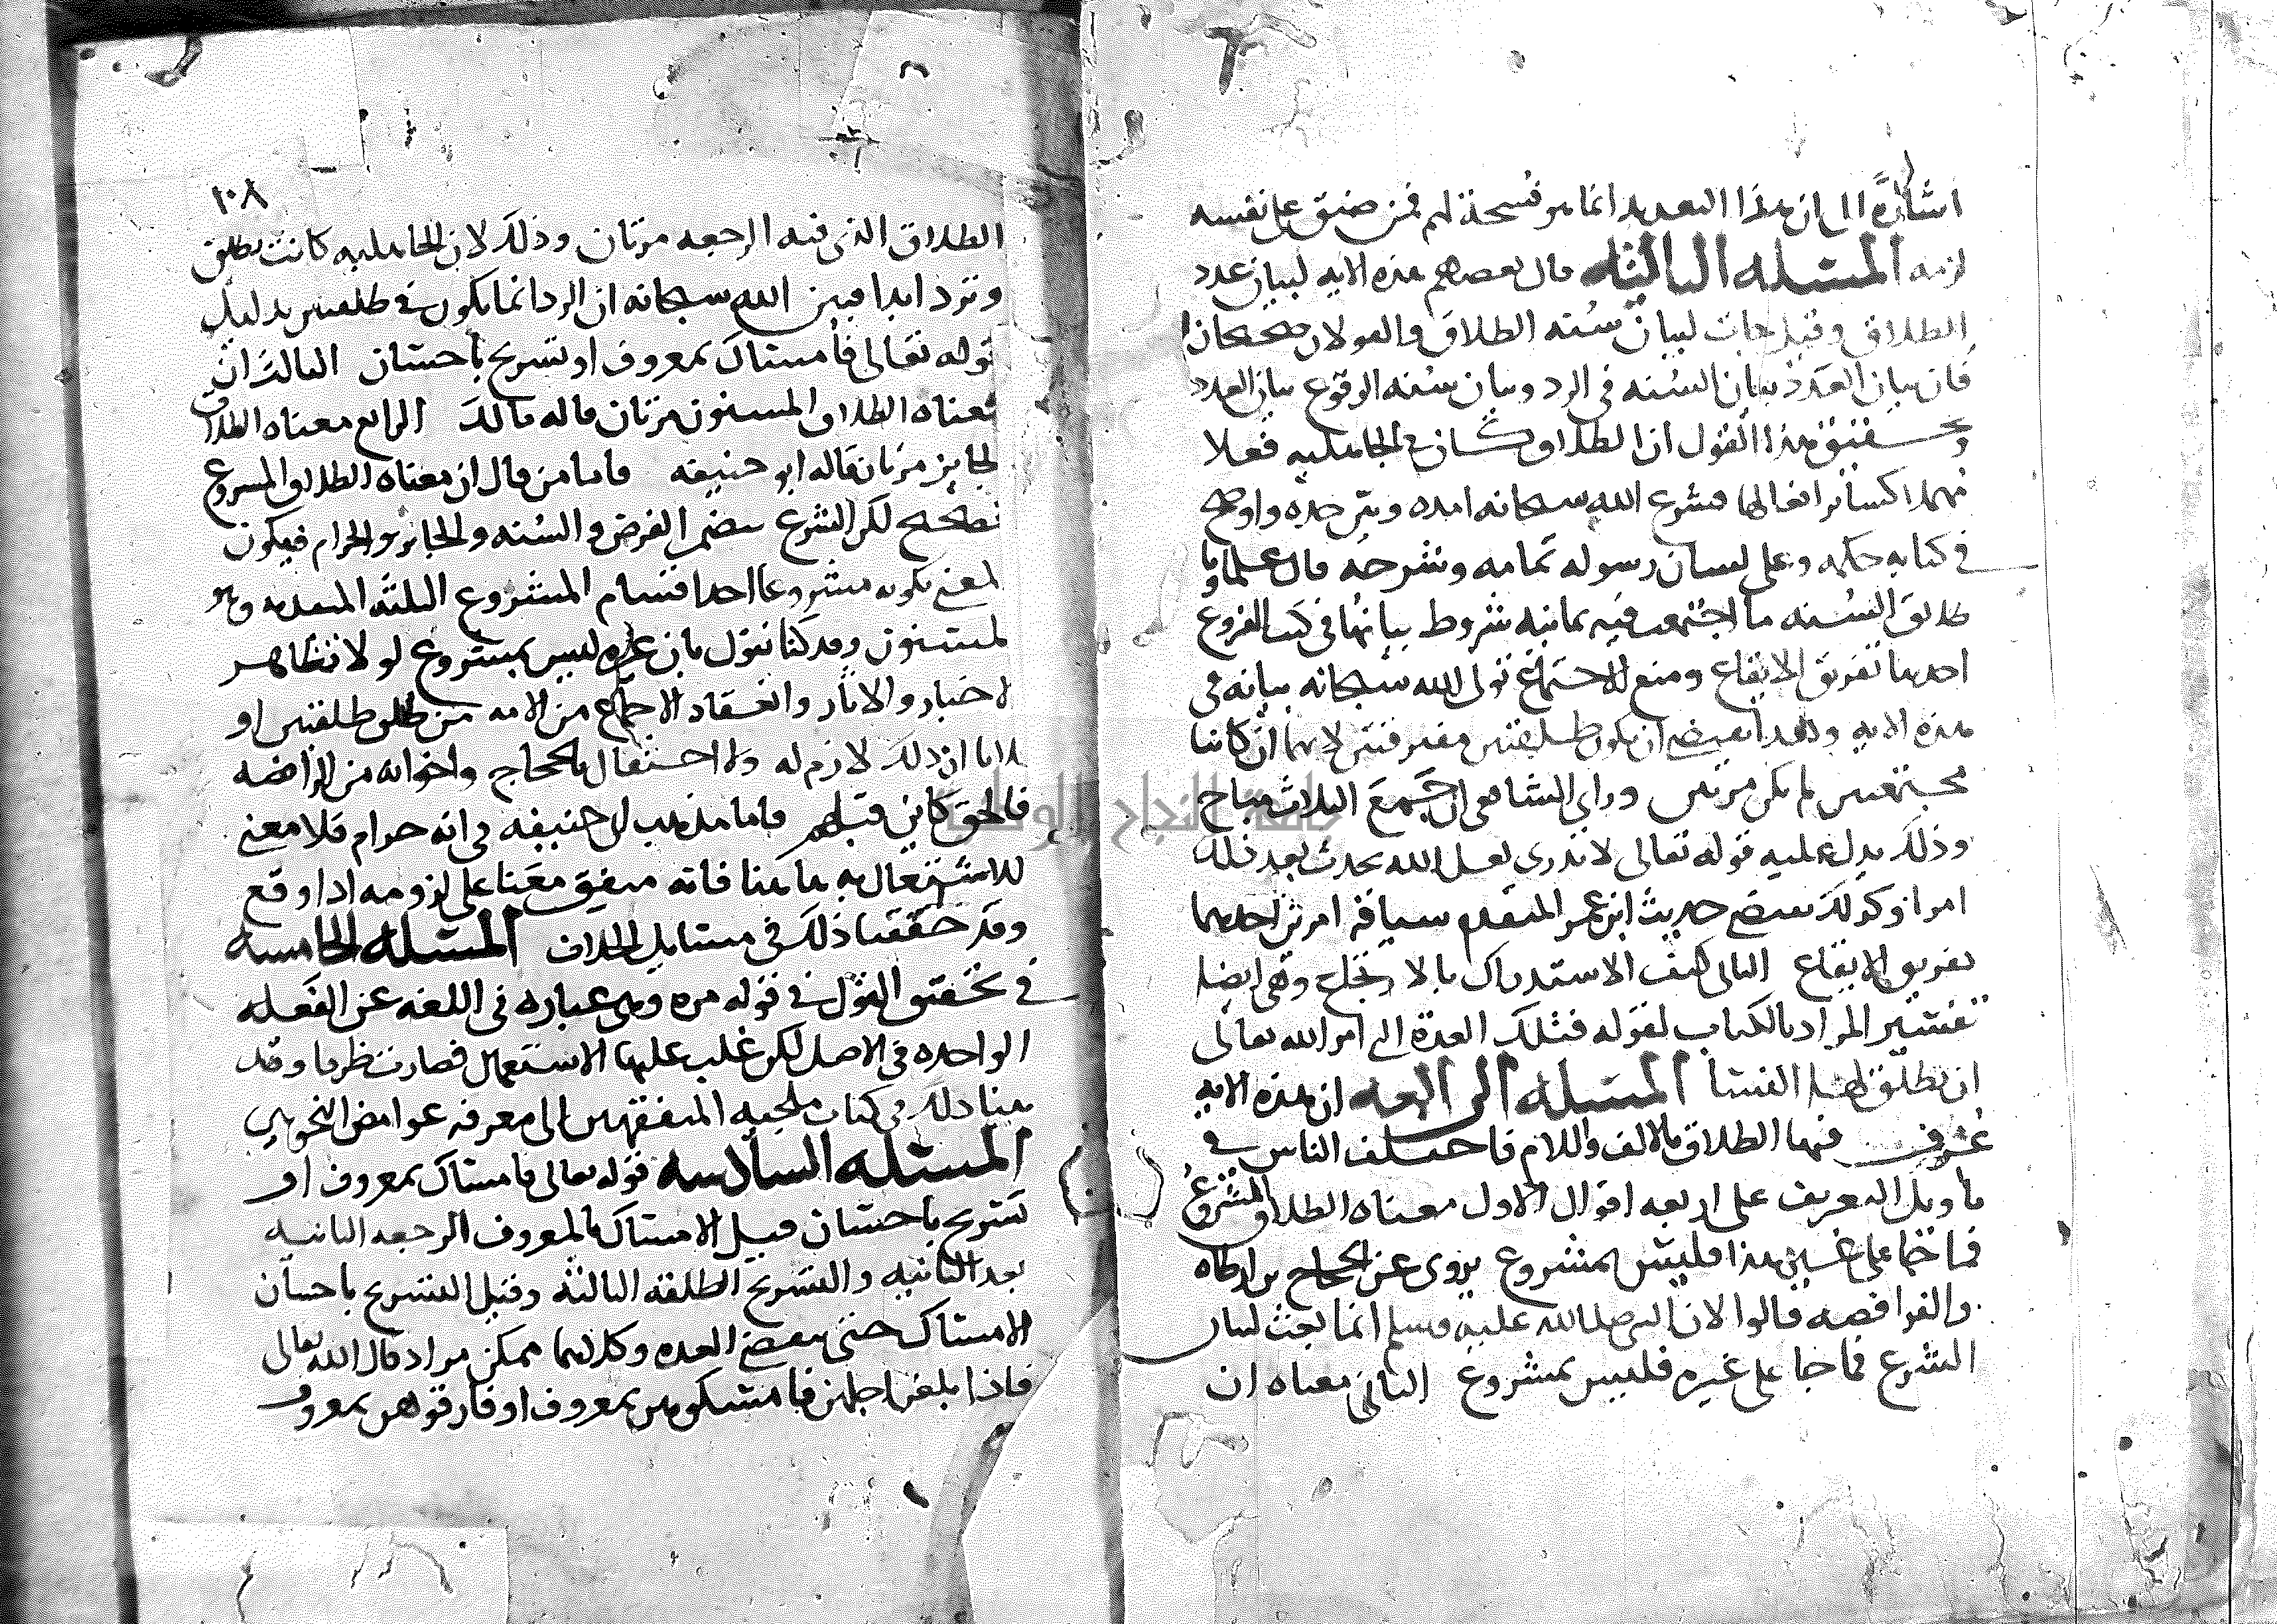 اشارة الى ان هذا التعديد انما هو فسحة لهم فمن ضيق على نفسه
لزمه المسئله الثالثه قال بعضهم هذه الايه لبيان عدد
الطلاق وقيل جات لبيان سنه الطلاق والقولان صحيحان
فان بيان العدد بيان السنه في الرد وبيان سنه الوقوع بيان العدد
وتحقيق هذا القول ان الطلاق كان في الجاهليه فعلا
مهملا كسائر افعالها فشرع الله سبحانه امده وبين حده واوضح
في كتابه حكمه وعلى لسان رسوله تمامه وشرحه قال علماونا
طلاق السنه ما اجتمعت فيه ثمانيه شروط بيانها في كتب الفروع
احدها تفريق الايقاع ومنع الاجتماع تولى الله سبحانه بيانه في
هذه الايه وهذا يقتضي ان يكون طلقتين مفترقتين لانهما ان كانتا
مجتمعتين لم يكن مرتين وراى الشافعي ان جمع الثلاث مباح
وذلك يدل عليه قوله تعالى لا تدري لعل الله يحدث بعد ذلك
امرا وكذلك يقتضي حديث ابن عمر المتقدم سياقه امرين احدهما
تفريق الايقاع الثاني كيف الاستدراك بالارتجاع وهي ايضا
تفسير المراد بالكتاب لقوله فتلك العدة التي امر الله تعالى
ان يطلق لها النسا المسئله الرابعه ان هذه الايه
عرف فيها الطلاق بالالف واللام فاختلف الناس في
تاويل التعريف على اربعه اقوال الاول معناه الطلاق المشروع
فما جا على غير هذا فليس بمشروع يروى عن الحجاج بن ارطاه
والرافضه قالوا لان النبي صلى الله عليه وسلم انما بعث لبيان
الشرع فما جا على غيره فليس بمشروع الثاني معناه ان
١٠٨
الطلاق الذي فيه الرجعه مرتان وذلك لان الجاهليه كانت تطلق
وترد ابدا فبين الله سبحانه ان الرد انما يكون في طلقتين بدليل
قوله تعالى فامساك بمعروف او تسريح باحسان الثالث ان
معناه الطلاق المسنون مرتان قاله مالك الرابع معناه الطلاق
الجايز مرتان قاله ابو حنيفه فاما من قال ان معناه الطلاق المشروع
فصحيح لكن الشرع يتضمن الفرض والسنه والجايز والحرام فيكون
المعنى بكونه مشروعا احد اقسام المشروع الثلثه المتقدمه وهو
المسنون وقد كنا نقول بان غيره ليس بمشروع لولا تظاهر
الاخبار والاثار وانعقاد الاجماع من الامه من طلق طلقتين او
ثلاثا ان ذلك لازم له ولا احتفال بالحجاج واخوانه من الرافضه
فالحق كاين قبلهم فاما مذهب ابي حنيفه في انه حرام فلا معنى
للاشتغال به هاهنا فانه متفق معنا على لزومه اذا وقع
وقد حققنا ذلك في مسايل الخلاف المسئله الخامسه
في تحقيق القول في قوله مره وهي عباره في اللغه عن الفعله
الواحده في الاصل لكن غلب عليها الاستعمال فصارت ظرفا وقد
بينا ذلك في كتاب ملجيه المتفقهين الى معرفه غوامض النحويين
المسئله السادسه قوله تعالى فامساك بمعروف او
تسريح باحسان قيل الامساك بالمعروف الرجعه الثانيه
بعد الثانيه والتسريح الطلقه الثالثه وقيل التسريح باحسان
الامساك حتى تنقضي العده وكلاهما ممكن مراد قال الله تعالى
فاذا بلغن اجلهن فامسكوهن بمعروف او فارقوهن بمعروف